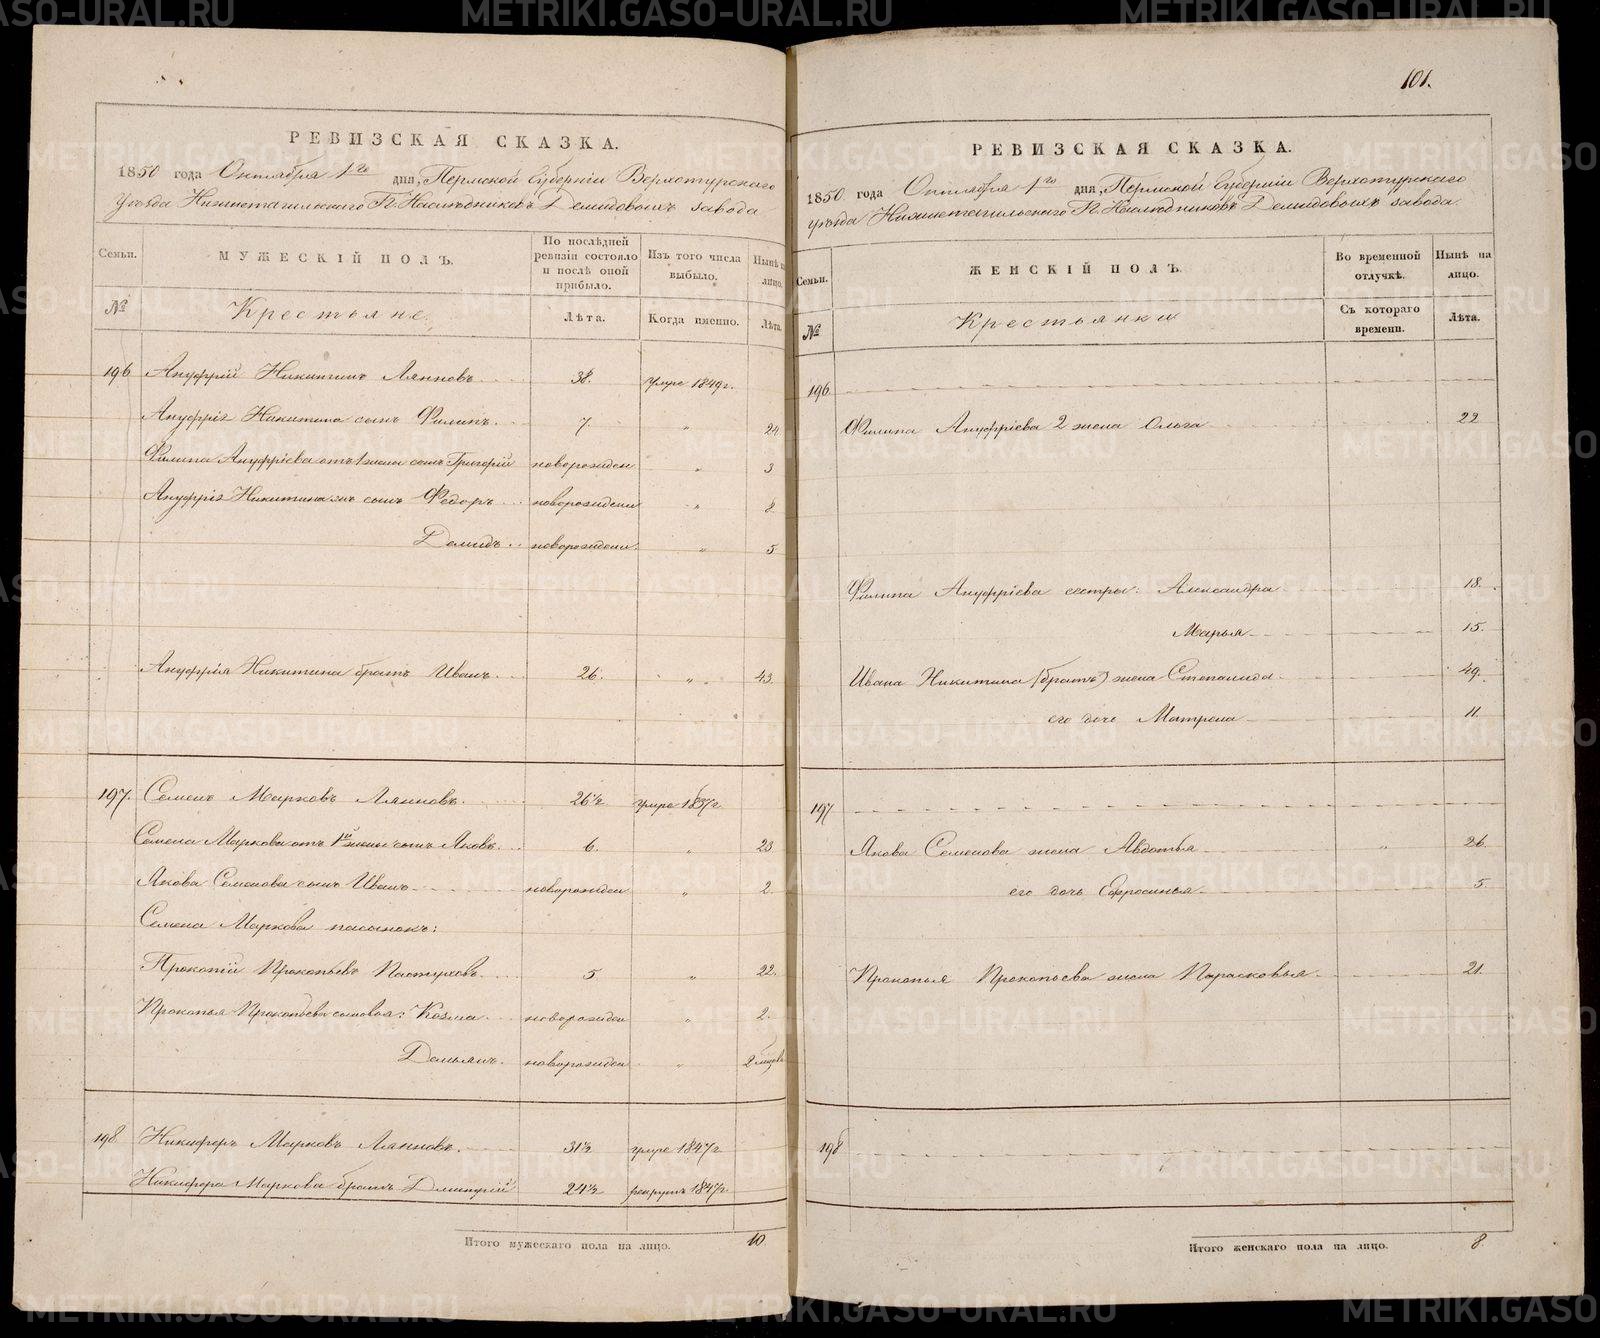 101.
РЕВИЗСКАЯ СКАЗКА.
1850 года Октября 1го дня, Пермской Губерніи Верхотурскаго
уѣзда Нижнетагильскаго Г. Наслѣдниковъ Демидовыхъ завода
Семьи.
МУЖЕСКІЙ ПОЛЪ.
По послѣдней ревизіи состояло и послѣ оной прибыло.
Изъ того числа выбыло.
Нынѣ на лицо.
№
Крестьяне.
Лѣта.
Когда именно.
Лѣта.
196 Ануфрій Никитинъ Ляпновъ 38. умре 1849 г.
Ануфрія Никитина сынъ Филипъ. 7. " 24
Филипа Ануфріева отъ 1 жены сынъ Григорій новорожден " 3
Ануфрія Никитина же сынъ Федоръ новорожден " 8
Демидъ новорожден. " 5
Ануфрія Никитина братъ Иванъ. 26. " 43.
197. Семенъ Марковъ Ляпновъ. 26½ умре 1837 г
Семена Маркова отъ 1й жены сынъ Яковъ. 6. " 23
Якова Семенова сынъ Иванъ новорожден " 2.
Семена Маркова пасынокъ:
Прокопій Прокопьевъ Пастуховъ. 5 " 22.
Прокопья Прокопьева сыновья: Козма новорожден " 2.
Демьянъ. новорожден " 2 мѣсяц
198 Никифоръ Марковъ Ляпновъ. 31½ умре 1847 г
Никифора Маркова братъ Дмитрій 24½ рекрутъ 1847 г
Итого мужескаго пола на лицо. 10.
РЕВИЗСКАЯ СКАЗКА.
1850 года Октября 1го дня, Пермской Губерніи Верхотурскаго
уѣзда Нижнетагильскаго Г. Наслѣдниковъ Демидовыхъ завода
Семьи.
ЖЕНСКІЙ ПОЛЪ.
Во временной отлучкѣ.
Нынѣ на лицо.
№
Крестьянки
Съ котораго времени.
Лѣта.
196
Филипа Ануфріева 2 жена Ольга 22
Филипа Ануфріева сестры: Александра 18.
Марья 15.
Ивана Никитина (братъ) жена Степанида 49.
его дочь Матрена 11.
197
Якова Семенова жена Авдотья " 26.
его дочь Ефросинья 5.
Прокопья Прокопьева жена Парасковья 21.
198
Итого женскаго пола на лицо. 8.
METRIKI.GASO-URAL.RU